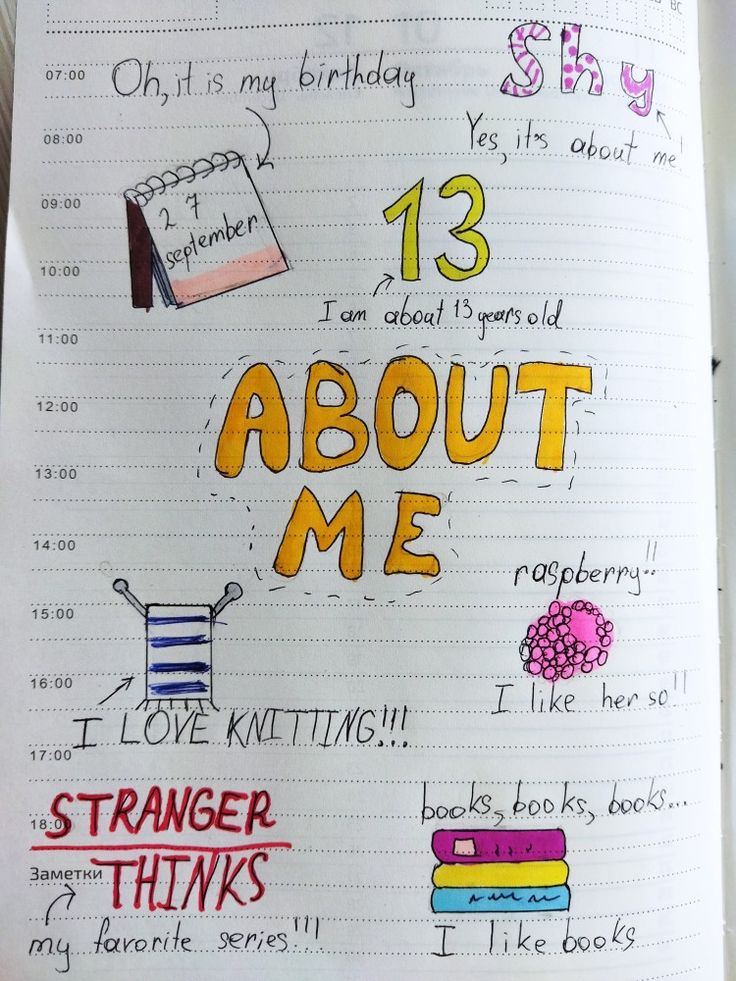 BC
07:00
Oh, it is my birthday
Shy
08:00
Yes, it's about me!
09:00
27
september
13
10:00
I am about 13 years old
11:00
ABOUT
12:00
13:00
ME
14:00
raspberry!!
15:00
16:00
I like her so!!
I LOVE KNITTING!!!
17:00
STRANGER
18:00
THINKS
Заметки
my favorite series!!!
books, books, books...
I like books